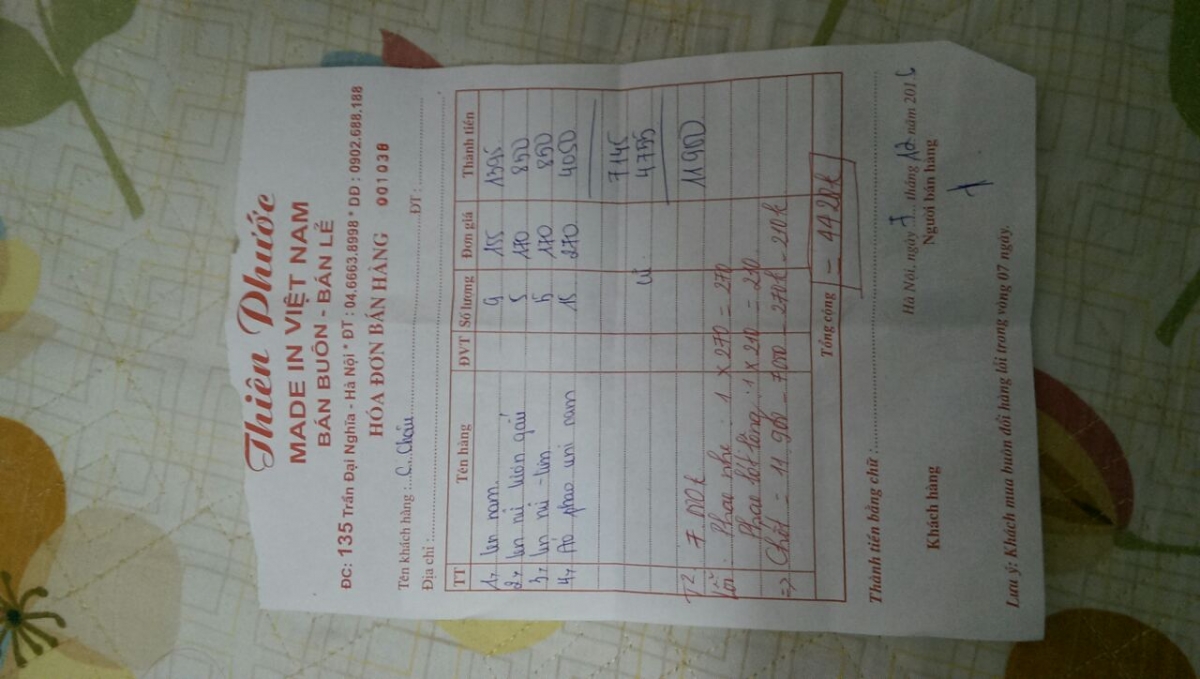 Thiên Phước
MADE IN VIỆT NAM
BÁN BUÔN - BÁN LẺ
ĐC: 135 Trần Đại Nghĩa - Hà Nội * ĐT : 04.6663.8998 * DĐ : 0902.688.188
HÓA ĐƠN BÁN HÀNG 001038
Tên khách hàng : C. Châu
Địa chỉ : ĐT :
TT Tên hàng ĐVT Số lượng Đơn giá Thành tiền
1, len nam 9 155 1395
2, len nữ 5 170 850
3, len nữ 5 170 850
4, Áo phao uni nam 15 270 4050
7145
cũ 4755
11900
T2 7000k
lỗi : Phao nhí : 1 x 270 = 270
Phao lót lông : 1 x 210 = 210
=> Chốt = 11.900 - 7000 - 270k - 210k
Tổng cộng = 4420k
Thành tiền bằng chữ :
Hà Nội, ngày 7 tháng 12 năm 201
Khách hàng Người bán hàng
Lưu ý: Khách mua buôn đổi hàng lỗi trong vòng 07 ngày.